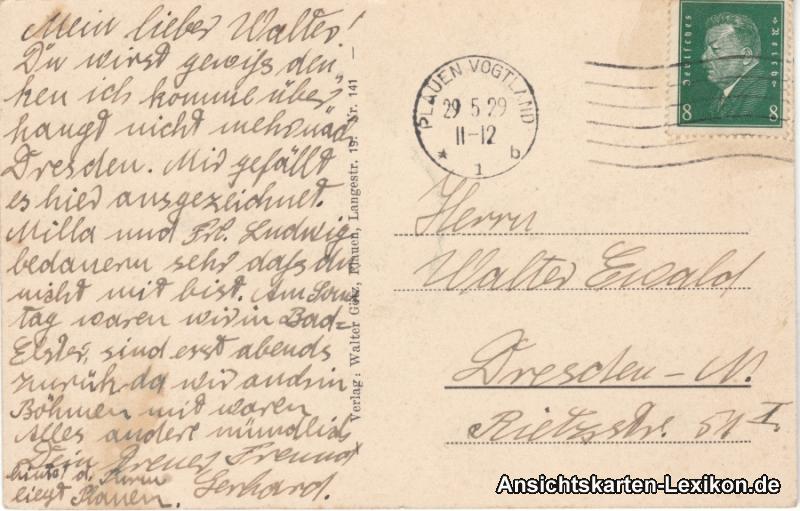 Mein lieber Walter!
Du wirst gewiß den-
ken ich komme über-
haupt nicht mehr nach
Dresden. Mir gefällt
es hier ausgezeichnet.
Milla und Frl. Ludwig
bedauern sehr daß du
nicht mit bist. Am Sonn-
tag waren wir in Bad-
Elster, sind erst abends
zurück da wir auch in
Böhmen mit waren
Alles andere mündlich
Dein treuer Freund
Gerhard.
hinter d. Turm
liegt Plauen.
Verlag: Walter Götz, Plauen, Langestr. 19. Nr. 141
PLAUEN VOGTLAND
29 5 29
11-12
* 1 b
Deutsches Reich
8 8
Herrn
Walter Ewald
Dresden-N.
Rietzstr. 51 I.
Ansichtskarten-Lexikon.de